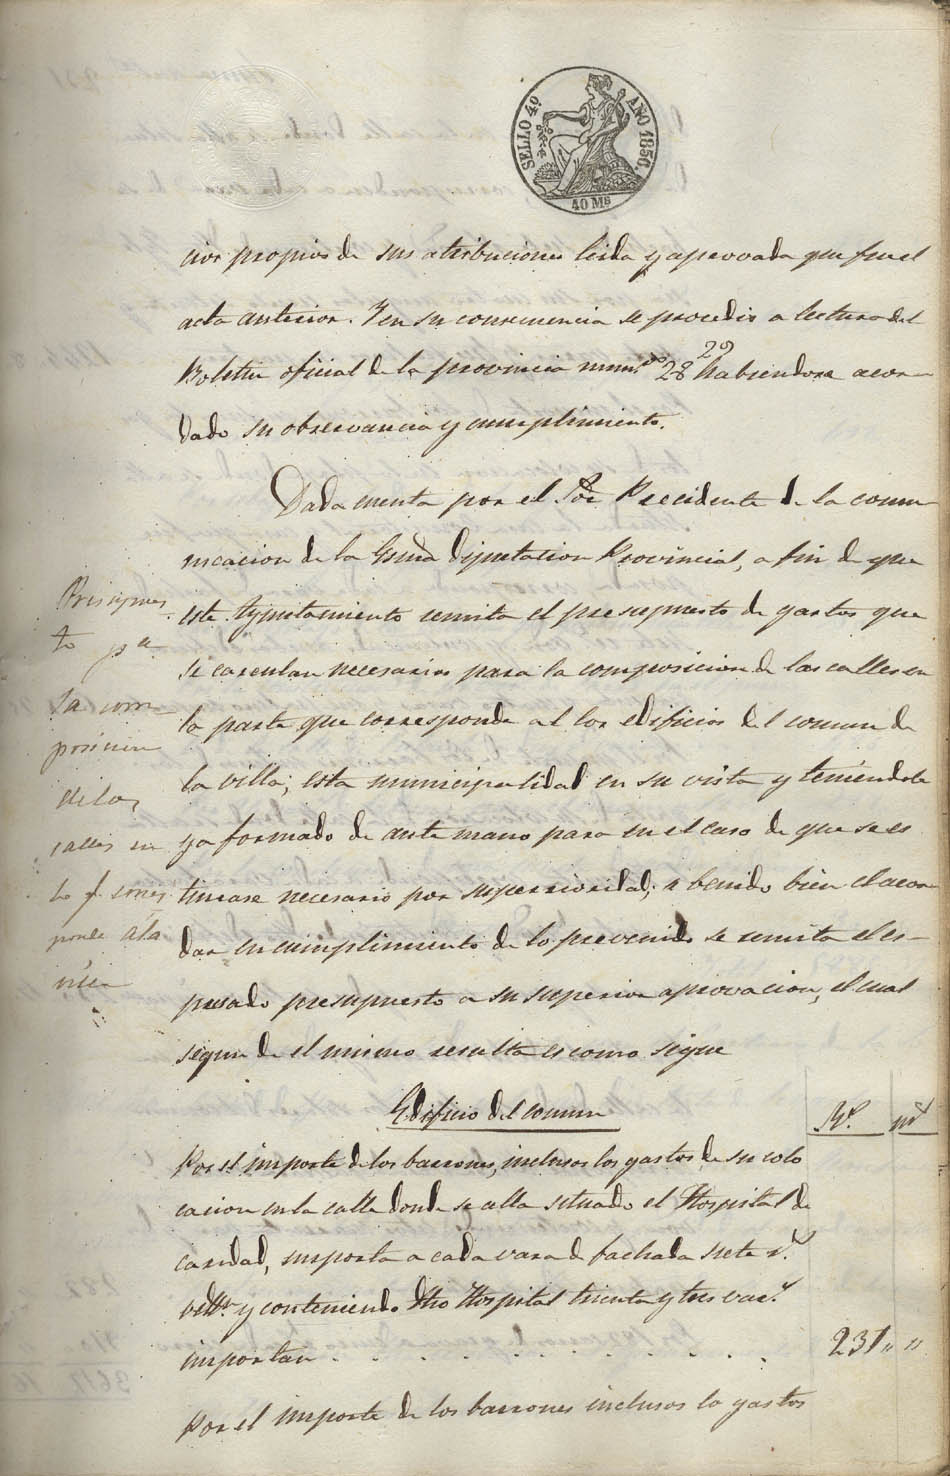 SELLO 4º AÑO 1850.
40 Ms
cios propios de sus atribuciones leida y aprovada que fue el
acta anterior. Y en su consecuencia se procedio a lectura del
Boletin oficial de la provincia num.º 28 29 habiendose acor-
dado su observancia y cumplimiento.
Dada cuenta por el Sor Precidente de la comu-
nicacion de la Exma Diputation Provincial, a fin de que
este Ayuntamiento remita el presupuesto de gastos que
se carculan necesarios para la composicion de las calles en
la parte que corresponde al los edificios del comun de
la villa; esta municipalidad en su vista y teniendole
ya formado de ante mano para en el caso de que se es
timase necesario por superrioridad; a benido bien el acor
dar en cumplimiento de lo prevenido se remita el es-
presado presupuesto a su superior aprovacion, el cual
segun de el mismo resulta es como sigue
Presupues
to pa
la com-
posicion
de las
calles en
lo q. corres
ponde a la
villa
Edificio del comun
Rs. ms
Por el importe de los barrones, inclusos los gastos de su colo
cacion en la calle donde se alla situado el Hospital de
caridad, importa a cada vara de fachada siete rs.
vellon y conteniendo dho Hospital trienta y tres vars.
importan . . . . . . . . . . . . 231 " "
Por el importe de los barrones inclusos lo gastos